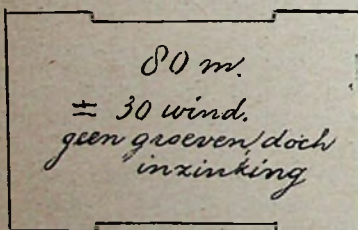 80 m.
± 30 wind.
geen groeven, doch
inzinking